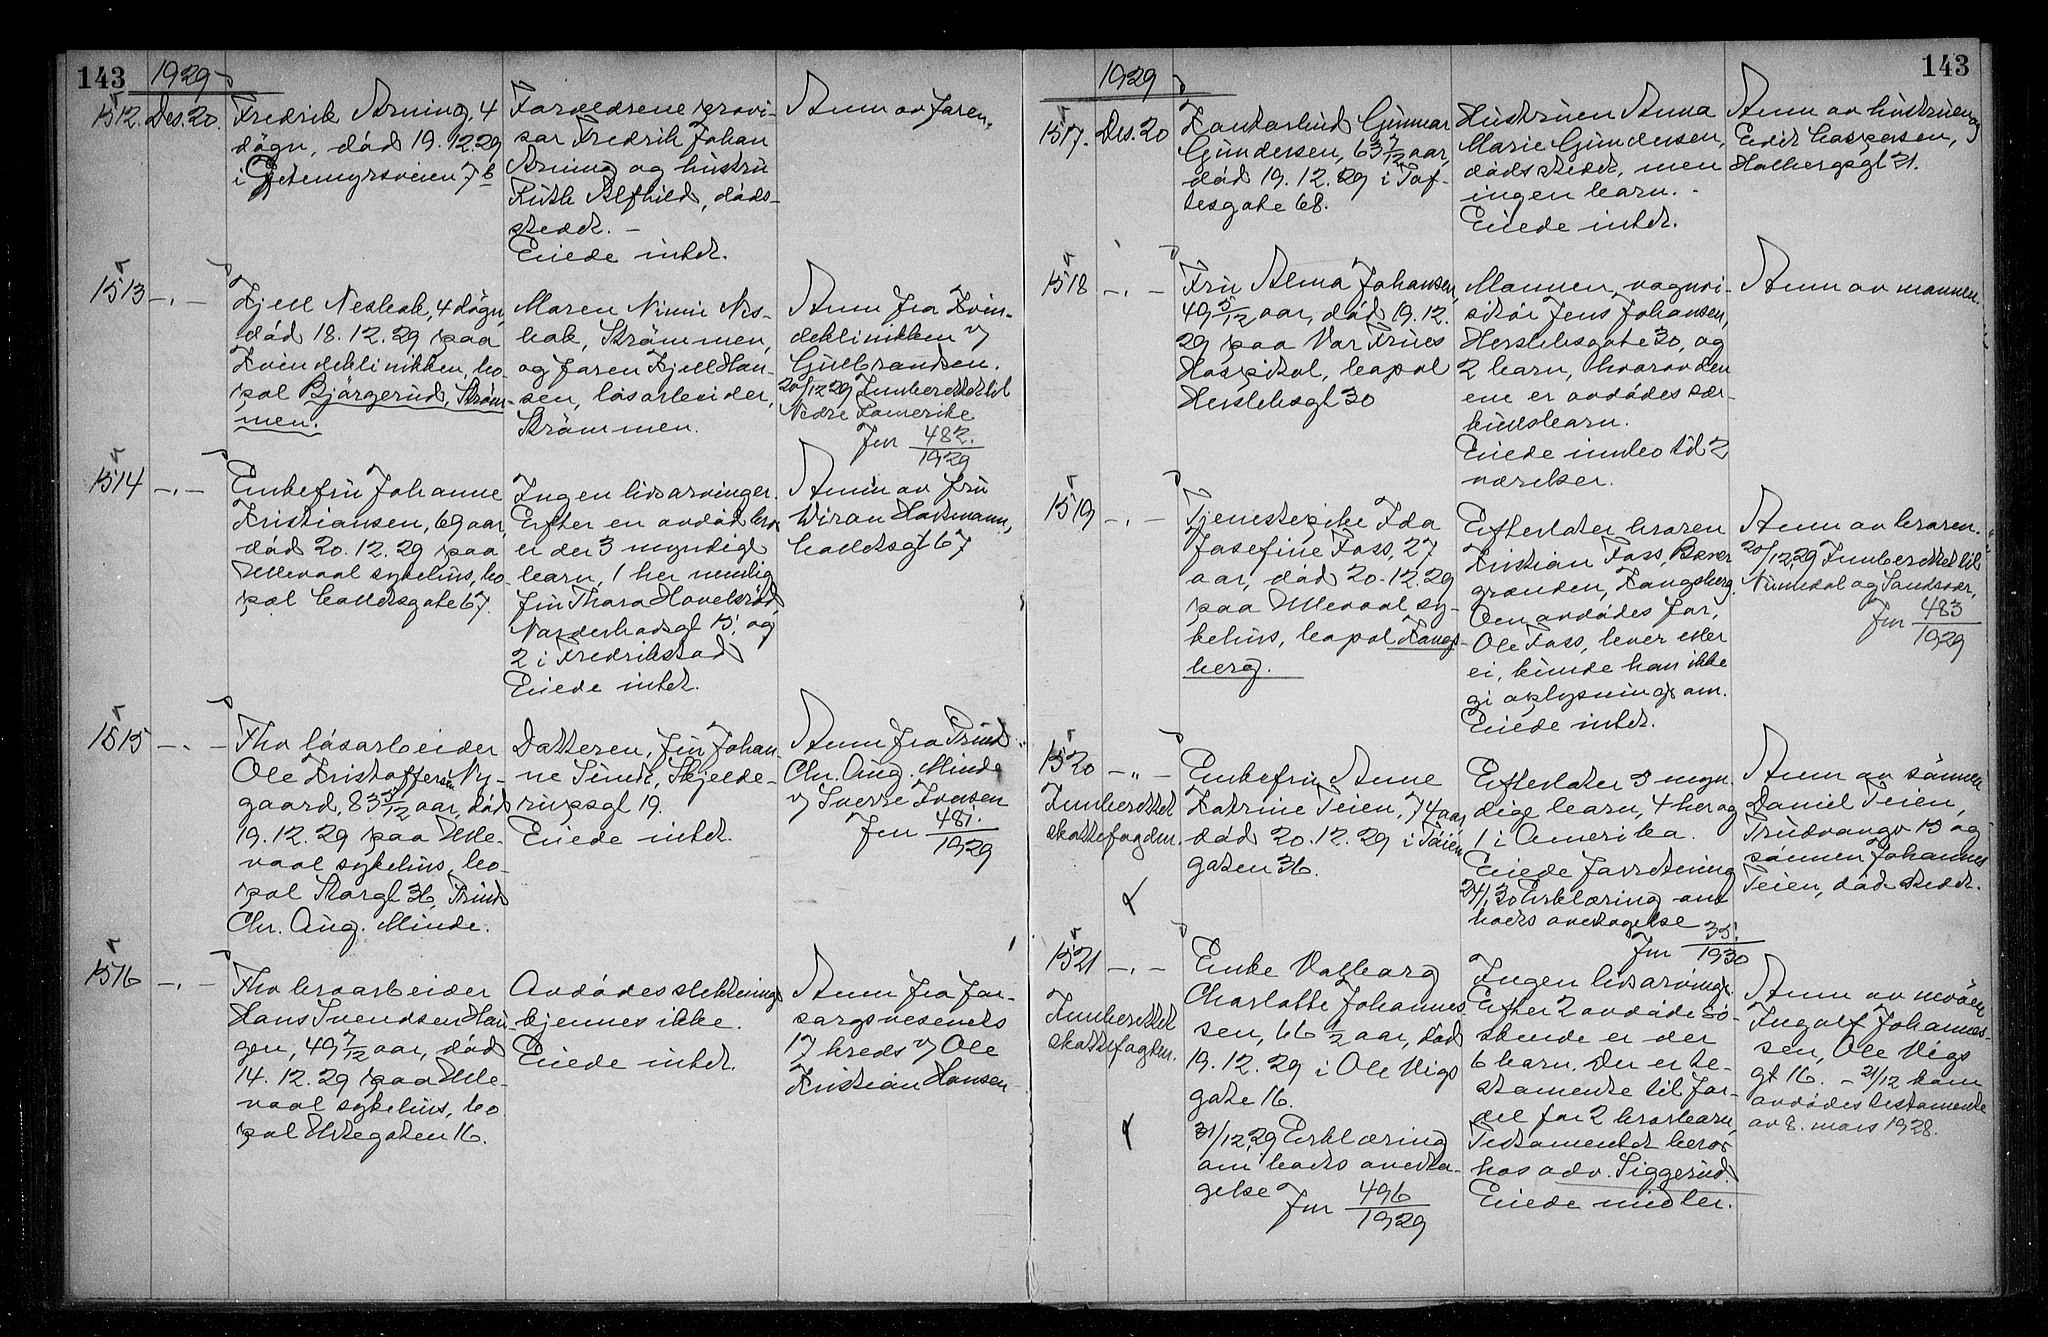 143
1929
1512. Des. 20.
Fredrik Arning, 4
døgn, død 19.12.29
i Geitemyrsveien 7 b
Forældrene provi-
sor Fredrik Johan
Arning og hustru
Ruth Alfhild, døds-
stedet. –
Eiede intet.
Anm av faren.
1513 – . –
Kjell Nesbak, 4 døgn,
død 18.12.29 paa
Kvindeklinikken, bo-
pæl Bjørgerud, Strøm-
men.
Maren Nimi Nes-
bak, Strømmen,
og faren Kjell Han-
sen, løsarbeider,
Strømmen.
Anm fra Kvin-
deklinikken v
Gulbrandsen.
20/12 29 Innberettet til
Nedre Romerike
Jnr 482.
1929
1514 – . –
Enkefru Johanne
Kristiansen, 69 aar,
død 20.12.29 paa
Ullevaal sykehus, bo-
pæl Calletsgate 67.
Ingen livsarvinger.
Efter en avdød bror
er der 3 myndige
barn, 1 her nemlig
fru Thora Havelsrød,
15, og
2 i Fredrikstad
Eiede intet.
Anm av fru
Hartmann,
67
1515 – . –
Fhv løsarbeider
Ole Kristoffersen Ny-
gaard, 83 5/12 aar, død
19.12.29 paa Ulle-
vaal sykehus, bo-
pæl Storgt 36,
Chr. Aug. Minde.
Datteren, fru Johan-
ne Sundt, Skjelde-
rupsgt 19.
Eiede intet.
Anm fra
Chr. Aug. Minde
v Sverre Iversen
Jnr 481.
1929
1516 – . –
Fhv broarbeider
Hans Svendsen Hau-
gen, 49 7/12 aar, død
14.12.29 paa Ulle-
vaal sykehus, bo-
pæl Urtegaten 16.
Avdødes slektninge
kjennes ikke.
Eiede intet.
Anm fra for-
sorgsvesenets
17 kreds v Ole
Kristian Hansen
143
1929
1517. Des. 20
Kontorbud Gunnar
Gundersen, 63 7/12 aar,
død 19.12.29 i Tof-
tesgate 68.
Hustruen Anna
Marie Gundersen,
dødsstedet, men
ingen barn. –
Eiede intet.
Anm av hustruen og
Edit Caspersen,
Holbergsgt 31.
1518 – . –
Fru Alma Johansen,
49 5/12 aar, død 19.12.
29 paa Vor Frues
Hospital, bopæl
Herslebsgt 30
Mannen, vognvi-
sitør Jens Johansen,
Herslebsgate 30, og
2 barn, hvorav den
ene er avdødes sær-
kulsbarn.
Eiede innbo til 2
værelser.
Anm av mannen.
1519 – . –
Tjenestepike Ida
Josefine Foss, 27
aar, død 20.12.29
paa Ullevaal sy-
kehus, bopæl Kongs-
berg.
Efterlater broren
Kristian Foss, Bever-
grenden, Kongsberg.
Om avdødes far,
Ole Foss, lever eller
ei, kunde han ikke
gi oplysning om.
Eiede intet.
Anm av broren.
20/12.29 Innberettet til
Numedal og Sandsvær,
Jnr 483
1929
1520 – „ –
Innberettet
skattefogden.
Enkefru Anne
Katrine Teien, 74 aar,
død 20.12.29 i Tøien-
gaten 36.
Efterlater 5 myn-
dige barn, 4 her og
1 i Amerika.
Eiede forretning
24/1.30 Erklæring om
boets overtagelse
Jnr 35.
1930
Anm av sønnen
Daniel Teien,
Trudvangv 15 og
sønnen Johannes
Teien, dødsstedet.
1521 – . –
Innberettet
skattefogden.
Enke Valborg
Charlotte Johannes-
sen, 66 1/2 aar, død
19.12.29 i Ole Vigs
gate 16.
31/12.29 Erklæring
om boets overta-
gelse
Jnr 496
1929
Ingen livsarving.
Efter 2 avdøde sø-
skende er der
6 barn. Der er te-
stamente til for-
del for 2 brorbarn,
Testamentet beror
hos adv. Siggerud.
Eiede midler.
Anm av nevøen
Ingolf Johannes-
sen, Ole Vigs
gt 16. – 21/12 kom
avdødes testamente
av 8. mars 1928.